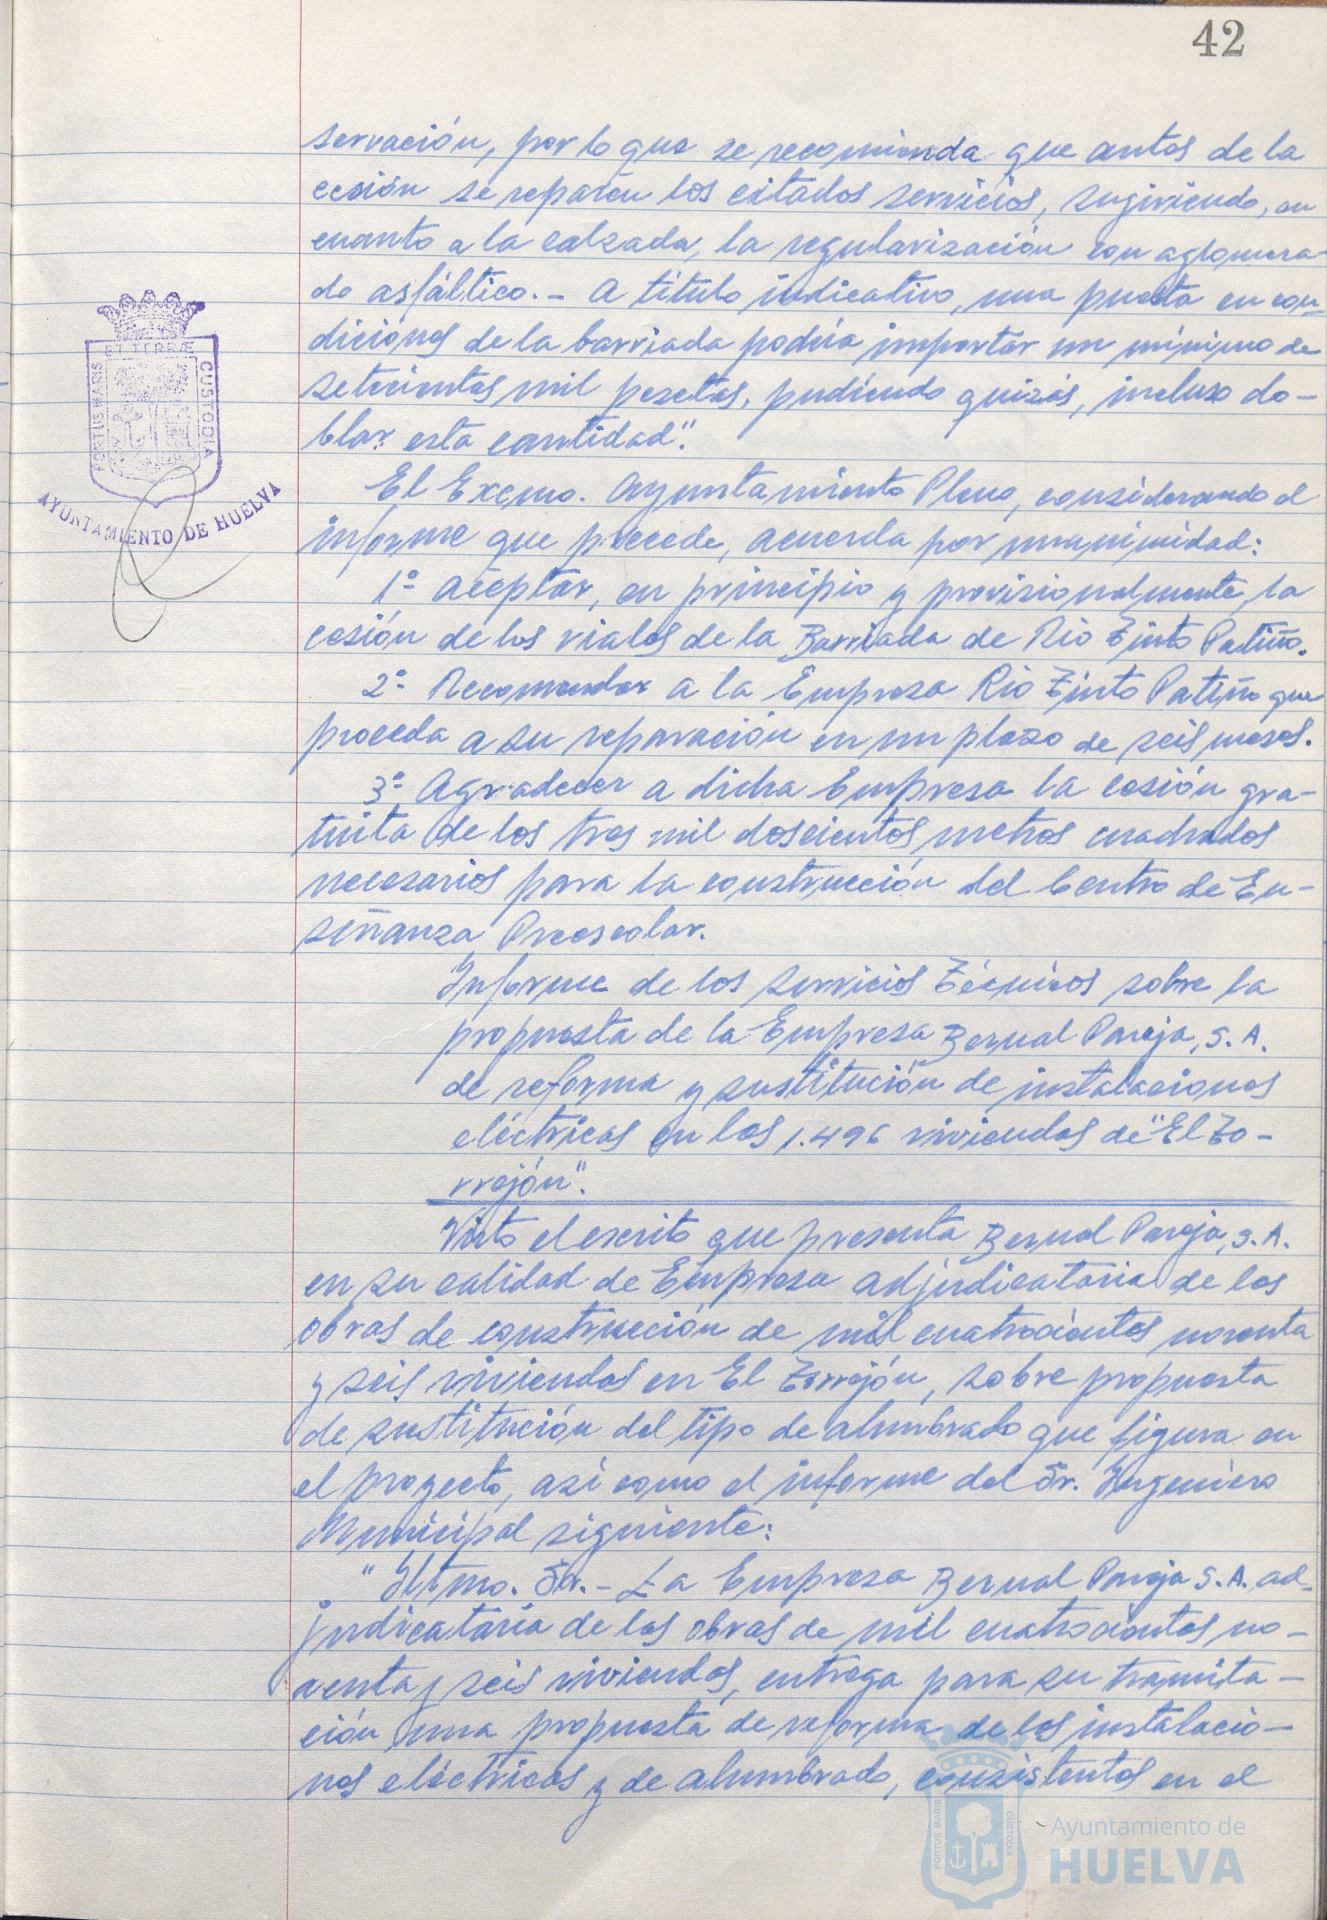 42
servación, por lo que se recomienda que antes de la
cesión se reparen los citados servicios, sugiriendo, en
cuanto a la calzada, la regularización con aglomera-
do asfáltico.- A título indicativo, una puesta en con-
diciones de la barriada podría importar un mínimo de
setecientas mil pesetas, pudiendo quizás, incluso do-
blar esta cantidad".
El Excmo. Ayuntamiento Pleno, considerando el
informe que precede, acuerda por unanimidad:
1º Aceptar, en principio y provisionalmente, la
cesión de los viales de la Barriada de Rio Tinto Patiño.
2º Recomendar a la Empresa Rio Tinto Patiño que
proceda a su reparación en un plazo de seis meses.
3º Agradecer a dicha Empresa la cesión gra-
tuita de los tres mil doscientos metros cuadrados
necesarios para la construcción del Centro de En-
señanza Preescolar.
Informe de los Servicios Técnicos sobre la
propuesta de la Empresa Bernal Pareja, S.A.
de reforma y sustitución de instalaciones
eléctricas en las 1.496 viviendas de "El To-
rrejón".
Visto el escrito que presenta Bernal Pareja, S.A.
en su calidad de Empresa adjudicataria de las
obras de construcción de mil cuatrocientas noventa
y seis viviendas en El Torrejón, sobre propuesta
de sustitución del tipo de alumbrado que figura en
el proyecto, así como el informe del Sr. Ingeniero
Municipal siguiente:
"Iltmo. Sr.- La Empresa Bernal Pareja S.A. ad-
judicataria de las obras de mil cuatrocientas no-
venta y seis viviendas, entrega para su tramita-
ción una propuesta de reforma de las instalacio-
nes eléctricas y de alumbrado, consistentes en el
PORTUS MARIS
ET TERRÆ
CUSTODIA
AYUNTAMIENTO DE HUELVA
PORTUS MARIS
CUSTODIA
Ayuntamiento de
HUELVA